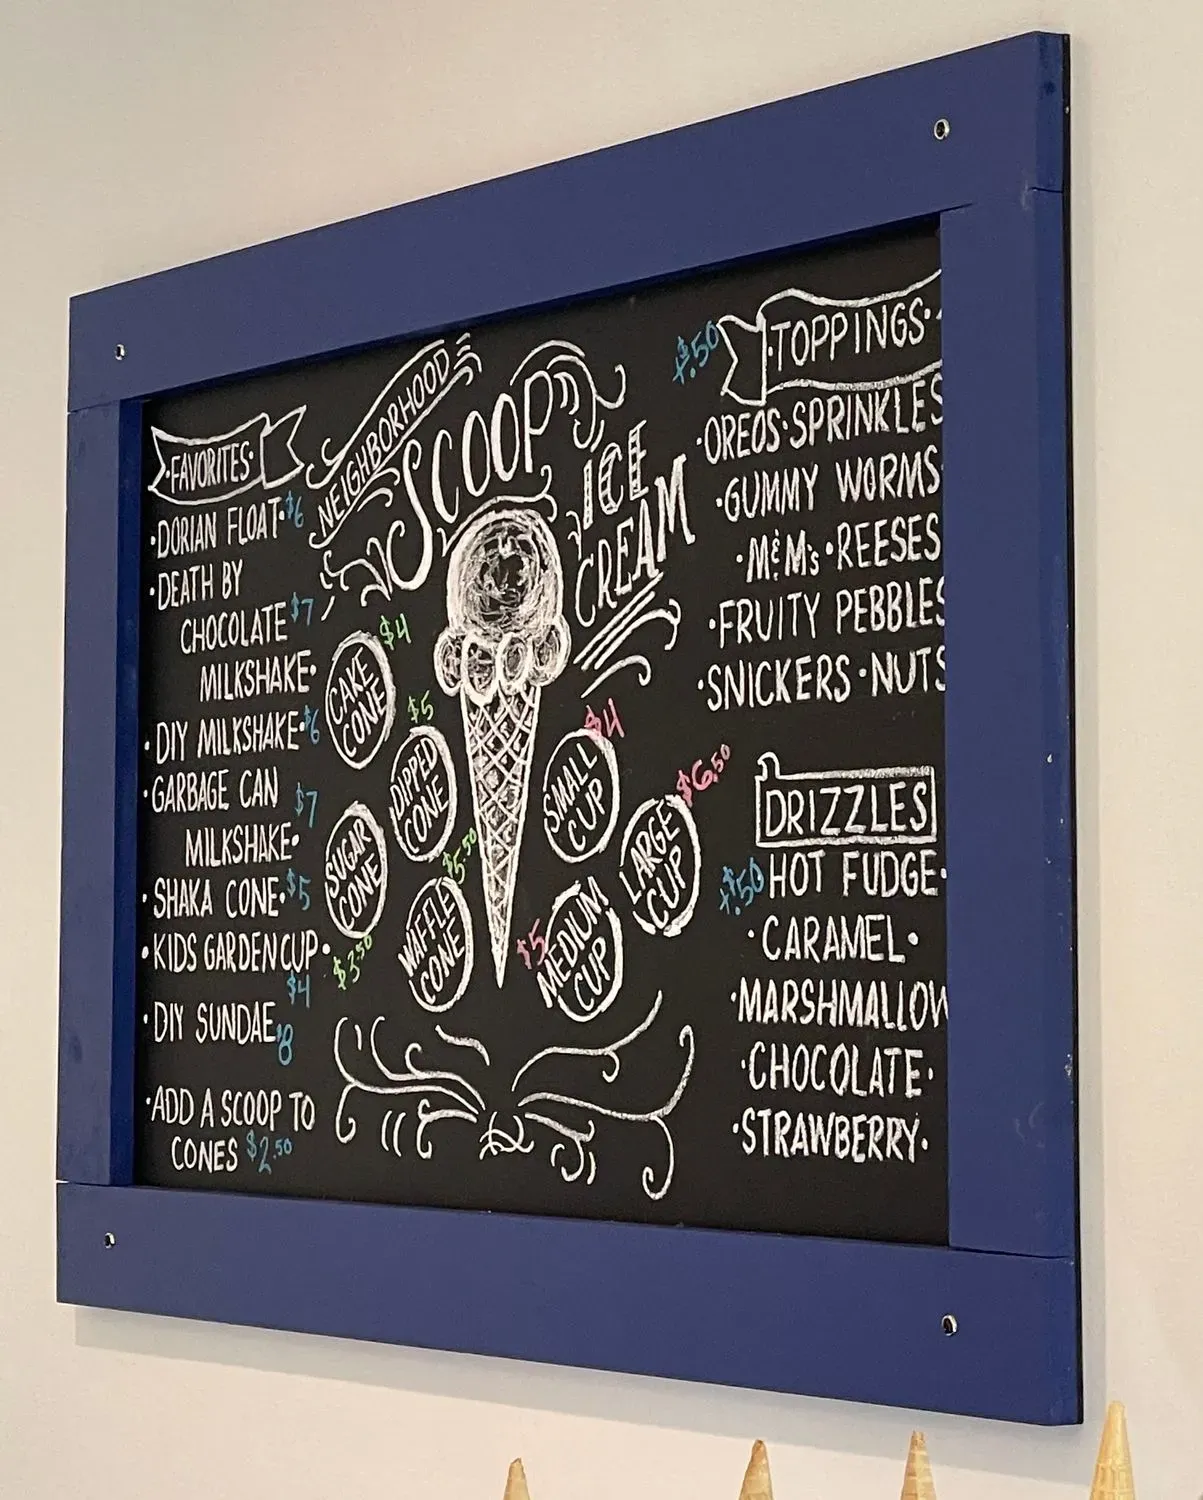 ·FAVORITES·
·DORIAN FLOAT· $6
·DEATH BY
CHOCOLATE $7
MILKSHAKE·
·DIY MILKSHAKE· $6
·GARBAGE CAN
$7
MILKSHAKE·
·SHAKA CONE· $5
·KIDS GARDEN CUP·
$4
·DIY SUNDAE
$8
·ADD A SCOOP TO
CONES $2.50
NEIGHBORHOOD
SCOOP
ICE
CREAM
$4
CAKE
CONE
$5
DIPPED
CONE
SUGAR
CONE
$3.50
$5.50
WAFFLE
CONE
$4
SMALL
CUP
$6.50
LARGE
CUP
$5
MEDIUM
CUP
+$.50
·TOPPINGS·
·OREOS·SPRINKLES
·GUMMY WORMS·
·M&Ms·REESES
·FRUITY PEBBLES
·SNICKERS·NUTS
DRIZZLES
+$.50
·HOT FUDGE·
·CARAMEL·
·MARSHMALLOW
·CHOCOLATE·
·STRAWBERRY·